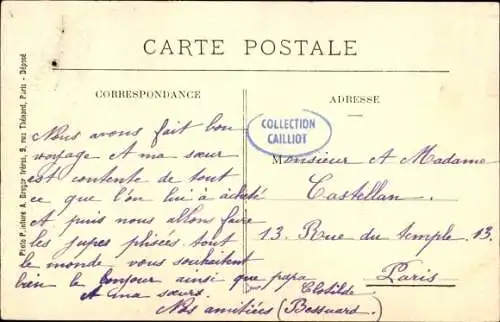 CARTE POSTALE
CORRESPONDANCE
Nous avons fait bon
voyage A ma sœur
est contente de tout
ce que l'on lui à acheté
A puis nous allons faire
les jupes plisées tout
le monde vous souhaitent
bien le bonjour ainsi que papa
A ma sœur.
Nos amitiées (Clotilde
Bessuard.)
ADRESSE
COLLECTION
CAILLIOT
Monsieur A Madame
Castellan.
13. Rue du temple. 13.
Paris
Photo Peinture A. Dreger frères, 9, rue Thénard, Paris - Déposé